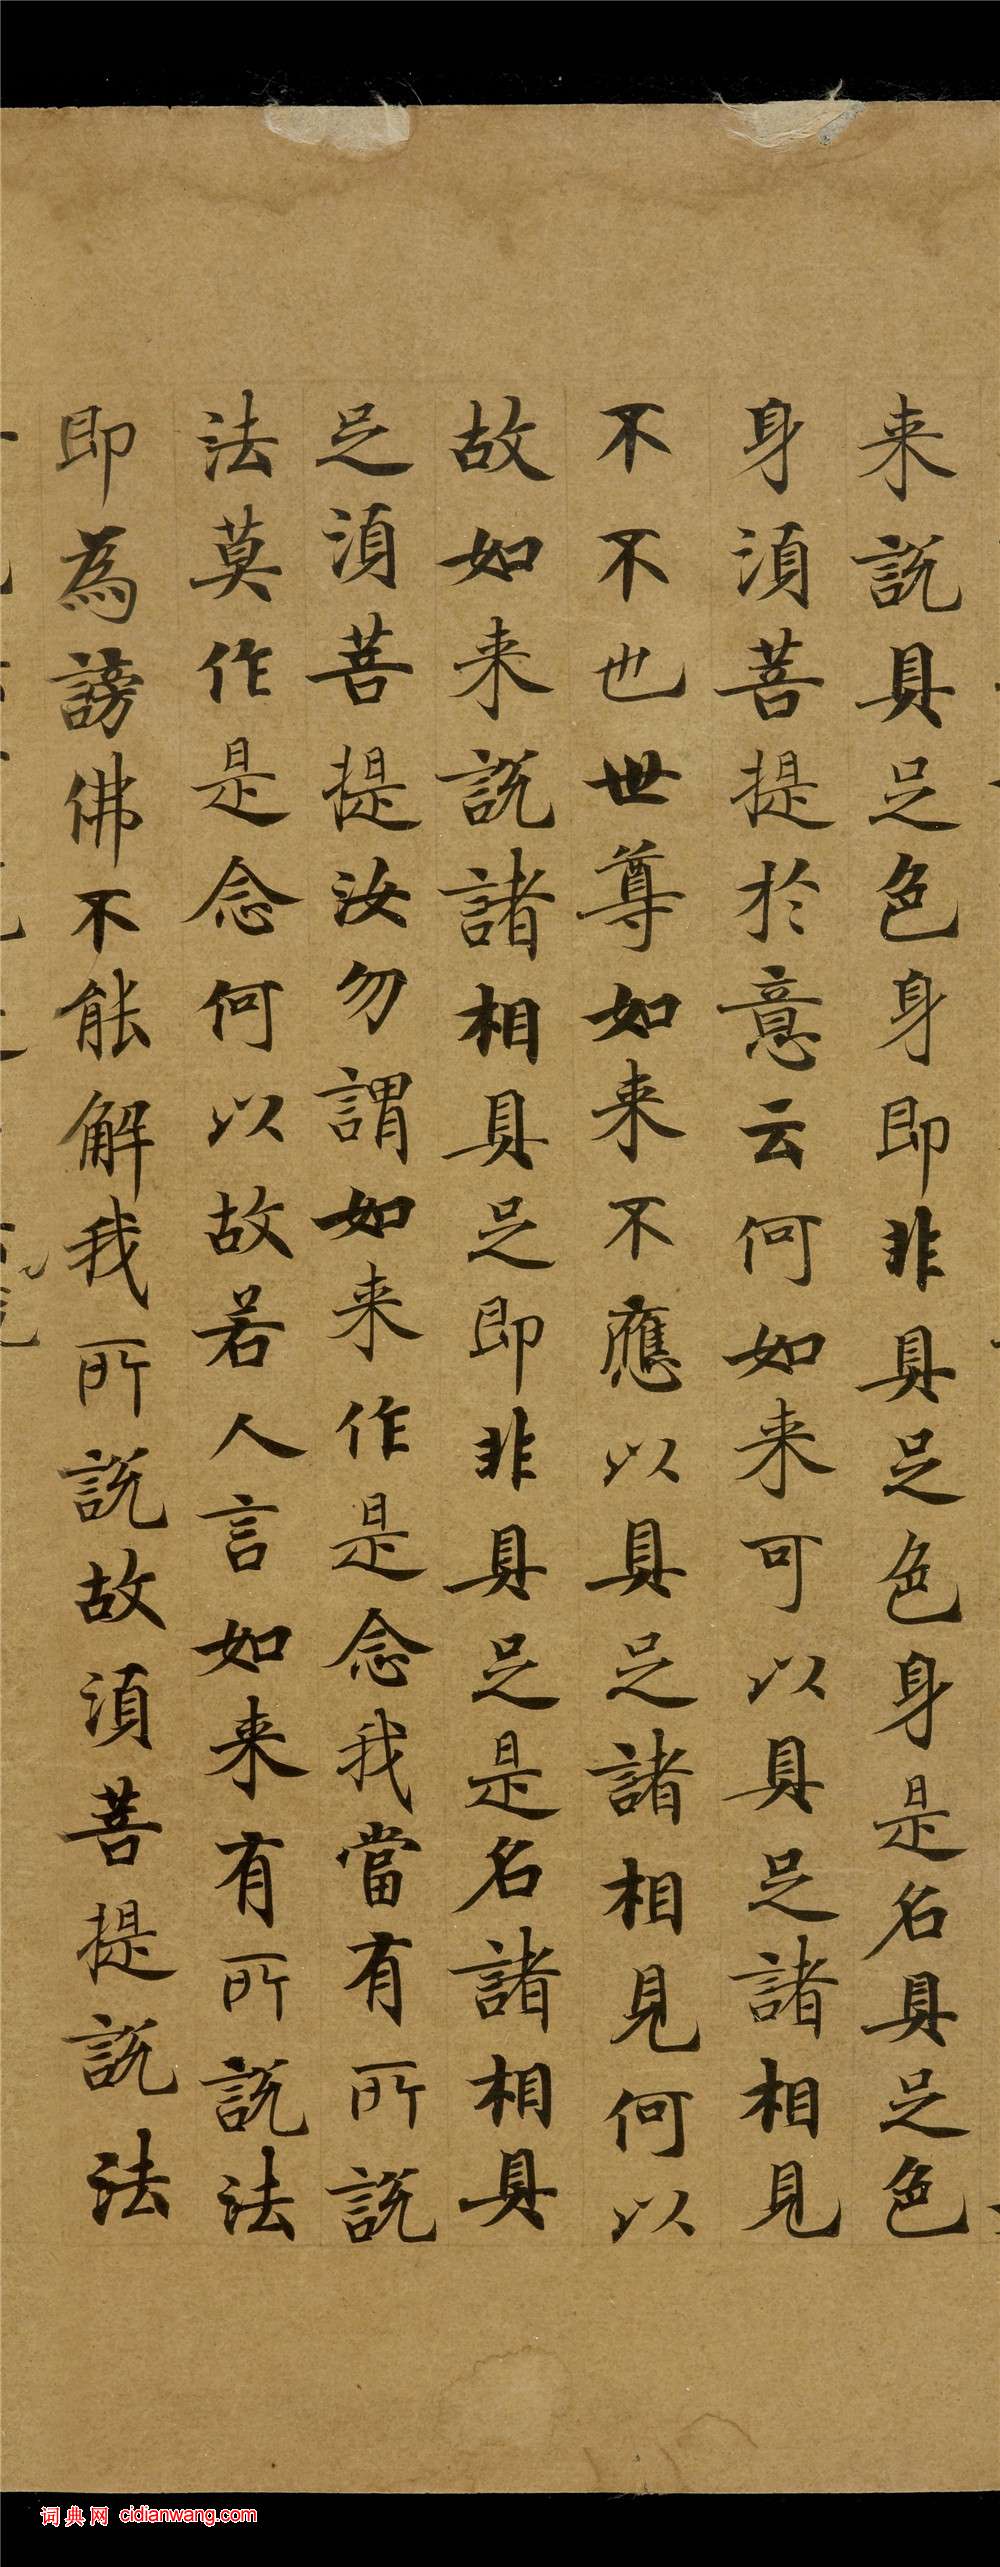 来說具足色身即非具足色身是名具足色
身須菩提於意云何如来可以具足諸相見
不不也世尊如来不應以具足諸相見何以
故如来說諸相具足即非具足是名諸相具
足須菩提汝勿謂如来作是念我當有所說
法莫作是念何以故若人言如来有所說法
即為謗佛不能解我所說故須菩提說法
词典网 cidianwang.com